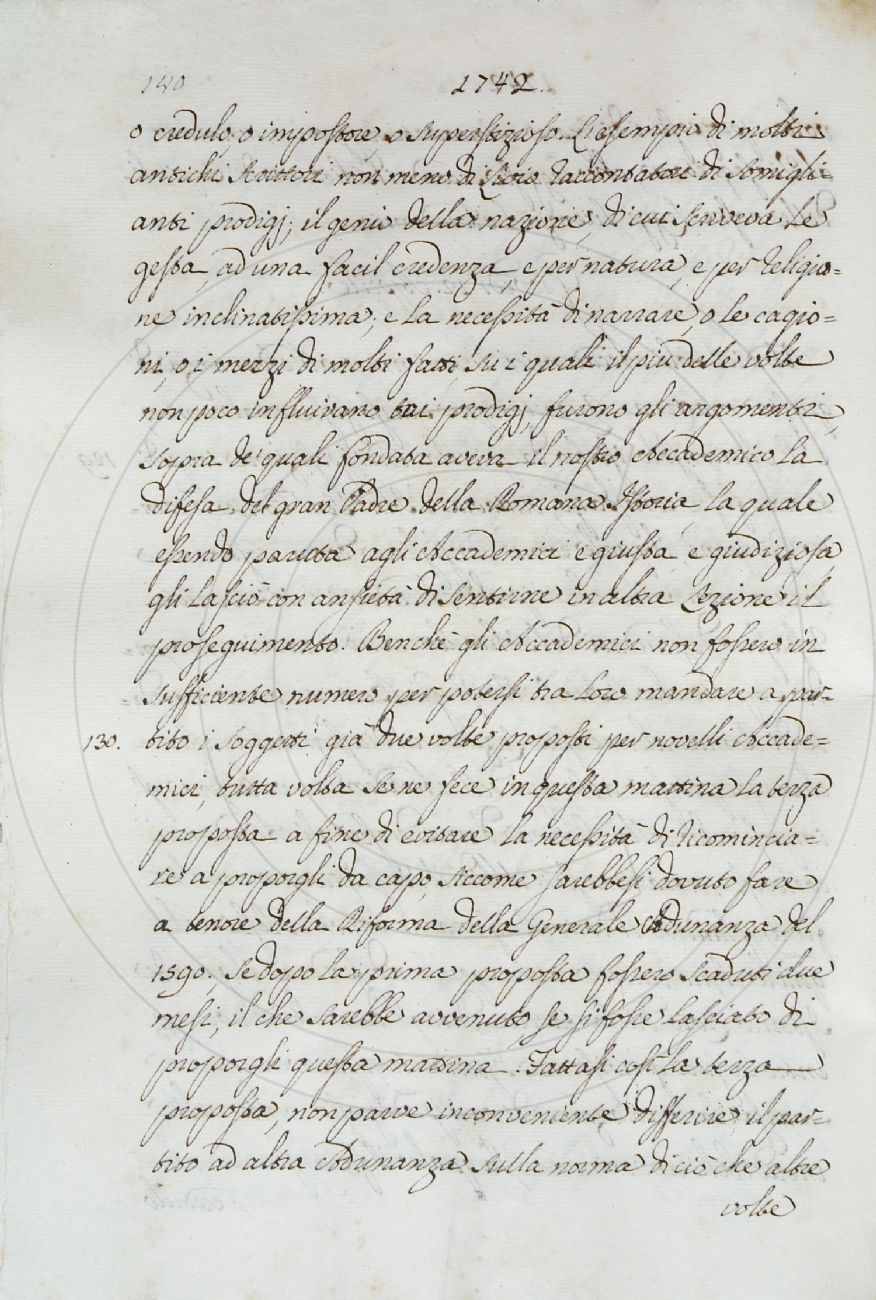 140 1742.
o credulo, o impostore, o superstizioso. L'esempio di molti
antichi Scrittori non meno di Livio raccontatori di somigli-
anti prodigj; il genio della nazione, di cui scriveva le
gesta, ad una facil credenza, e per natura, e per religio=
ne inclinatissima; e la necessità di narrare, o le cagio=
ni, o i mezzi di molti fatti, su i quali il più delle volte
non poco influivano tai prodigj, furono gli argomenti,
sopra de' quali fondata aveva il nostro Accademico la
difesa del gran Padre della Romana Istoria, la quale
essendo paruta agli Accademici e giusta, e giudiziosa,
gli lasciò con ansietà di sentirne in altra Lezione il
proseguimento. Benchè gli Accademici non fossero in
sufficiente numero per potersi tra loro mandare a par-
130. tito i soggetti già due volte proposti per novelli Accade=
mici, tutta volta se ne fece in questa mattina la terza
proposta a fine di evitare la necessità di ricomincia=
re a proporgli da capo, siccome sarebbesi dovuto fare
a tenore della Riforma della Generale Adunanza del
1590. se dopo la prima proposta fossero scaduti due
mesi, il che sarebbe avvenuto, se si fosse lasciato di
proporgli questa mattina. Fattasi così la terza
proposta, non parve inconveniente differire il par-
tito ad altra Adunanza sulla norma di ciò che altre
volte